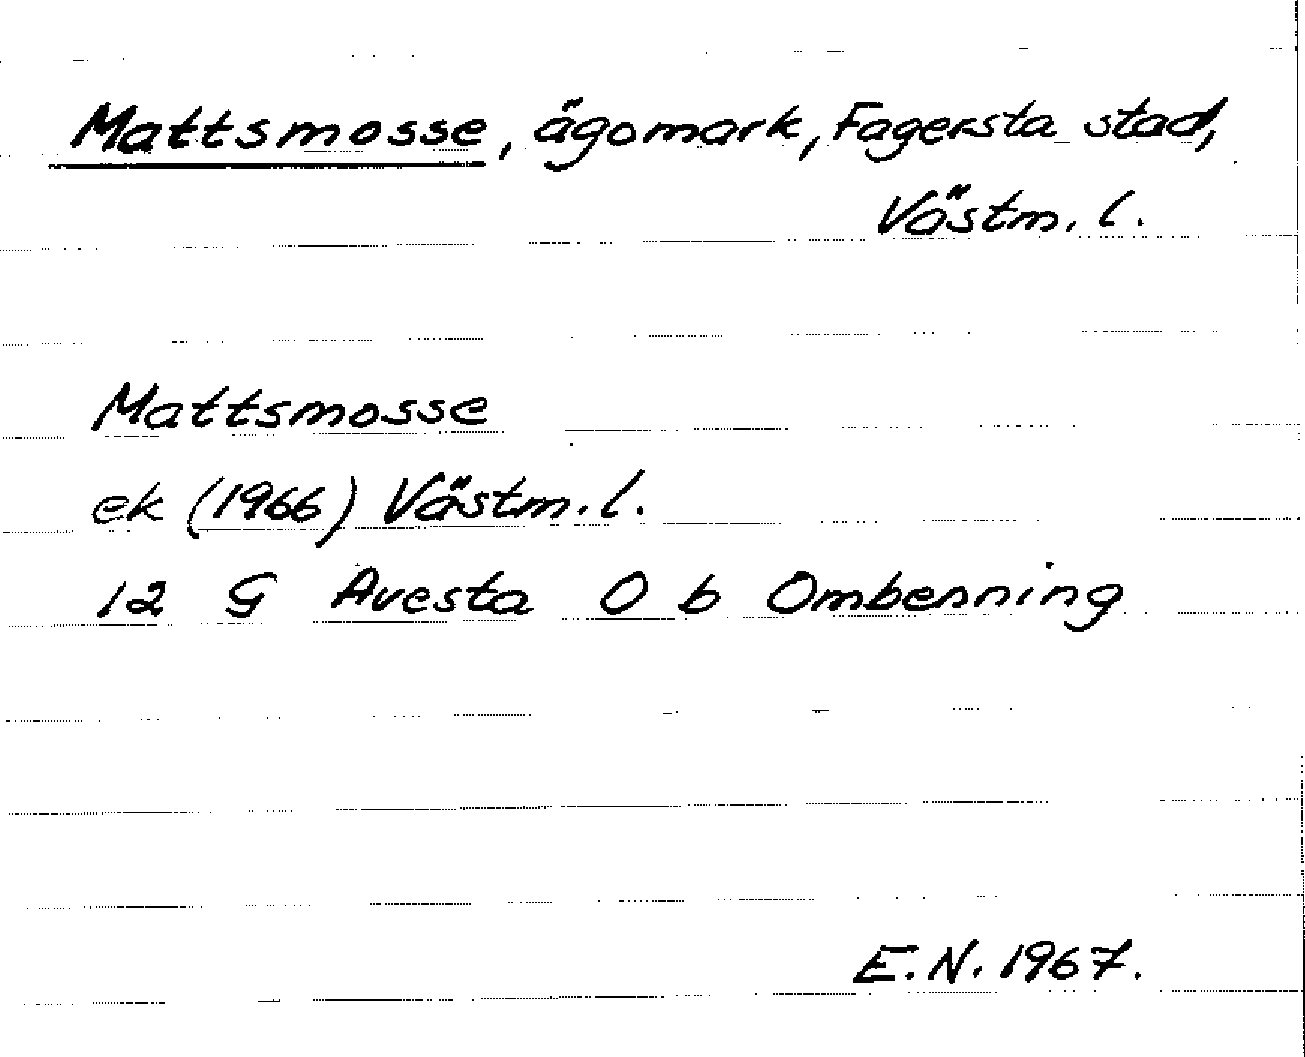 Mattsmosse, ägomark, Fagersta stad,
Västm. l.
Mattsmosse
ek (1966) Västm. l.
12 G Avesta O b Ombenning
E.N. 1967.